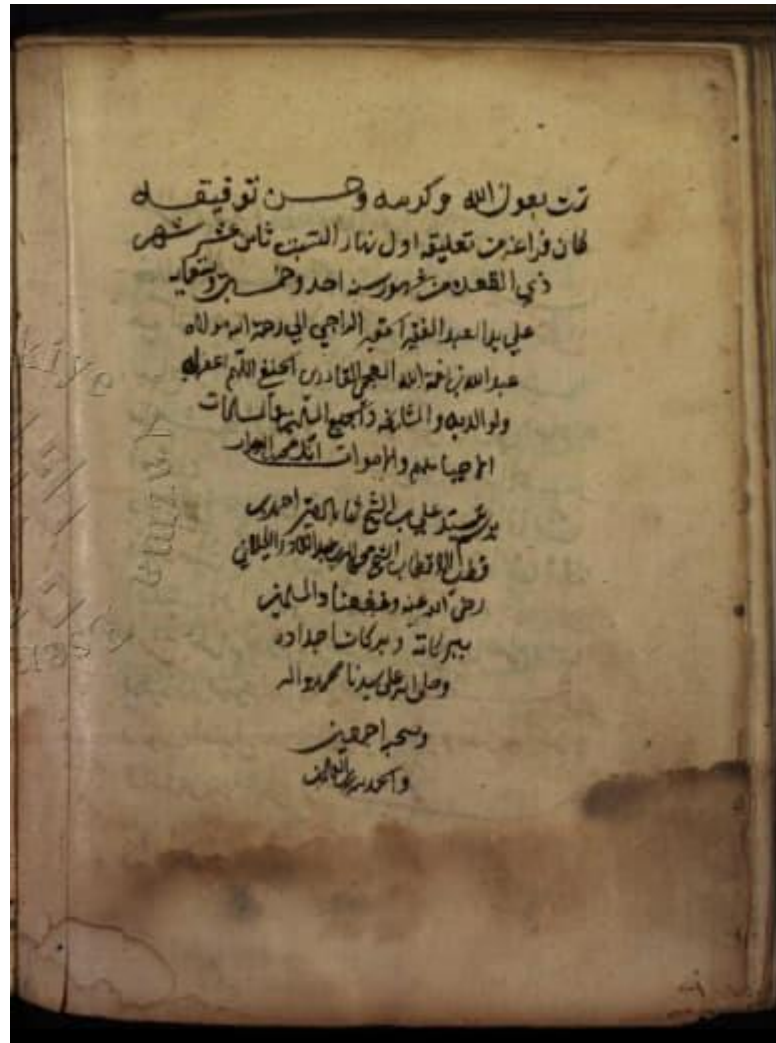 تمت بعون الله وكرمه وحسن توفيقه
كان فراغه من تعليقه اول نهار السبت ثامن عشر شهر
ذي القعده من شهور سنه احد وخمسين وتسعمايه
علي يد العبد الفقير احقر الراجي الي رحمة الله مولاه
عبد الله بن نعمة الله العجمي القادري الحنفي اللهم اغفر له
ولوالديه والمشايخه ولجميع المسلمين والمسلمات
الاحيا منهم والاموات انك مجيب
علي الشيخ احمد بن
قطب الاقطاب الشيخ محي الدين عبد القادر الكيلاني
رضي الله عنه ونفعنا والمسلمين
ببركاته وبركات اجداده
وصلى الله على سيدنا محمد واله
وصحبه اجمعين
والحمد لله رب العالمين